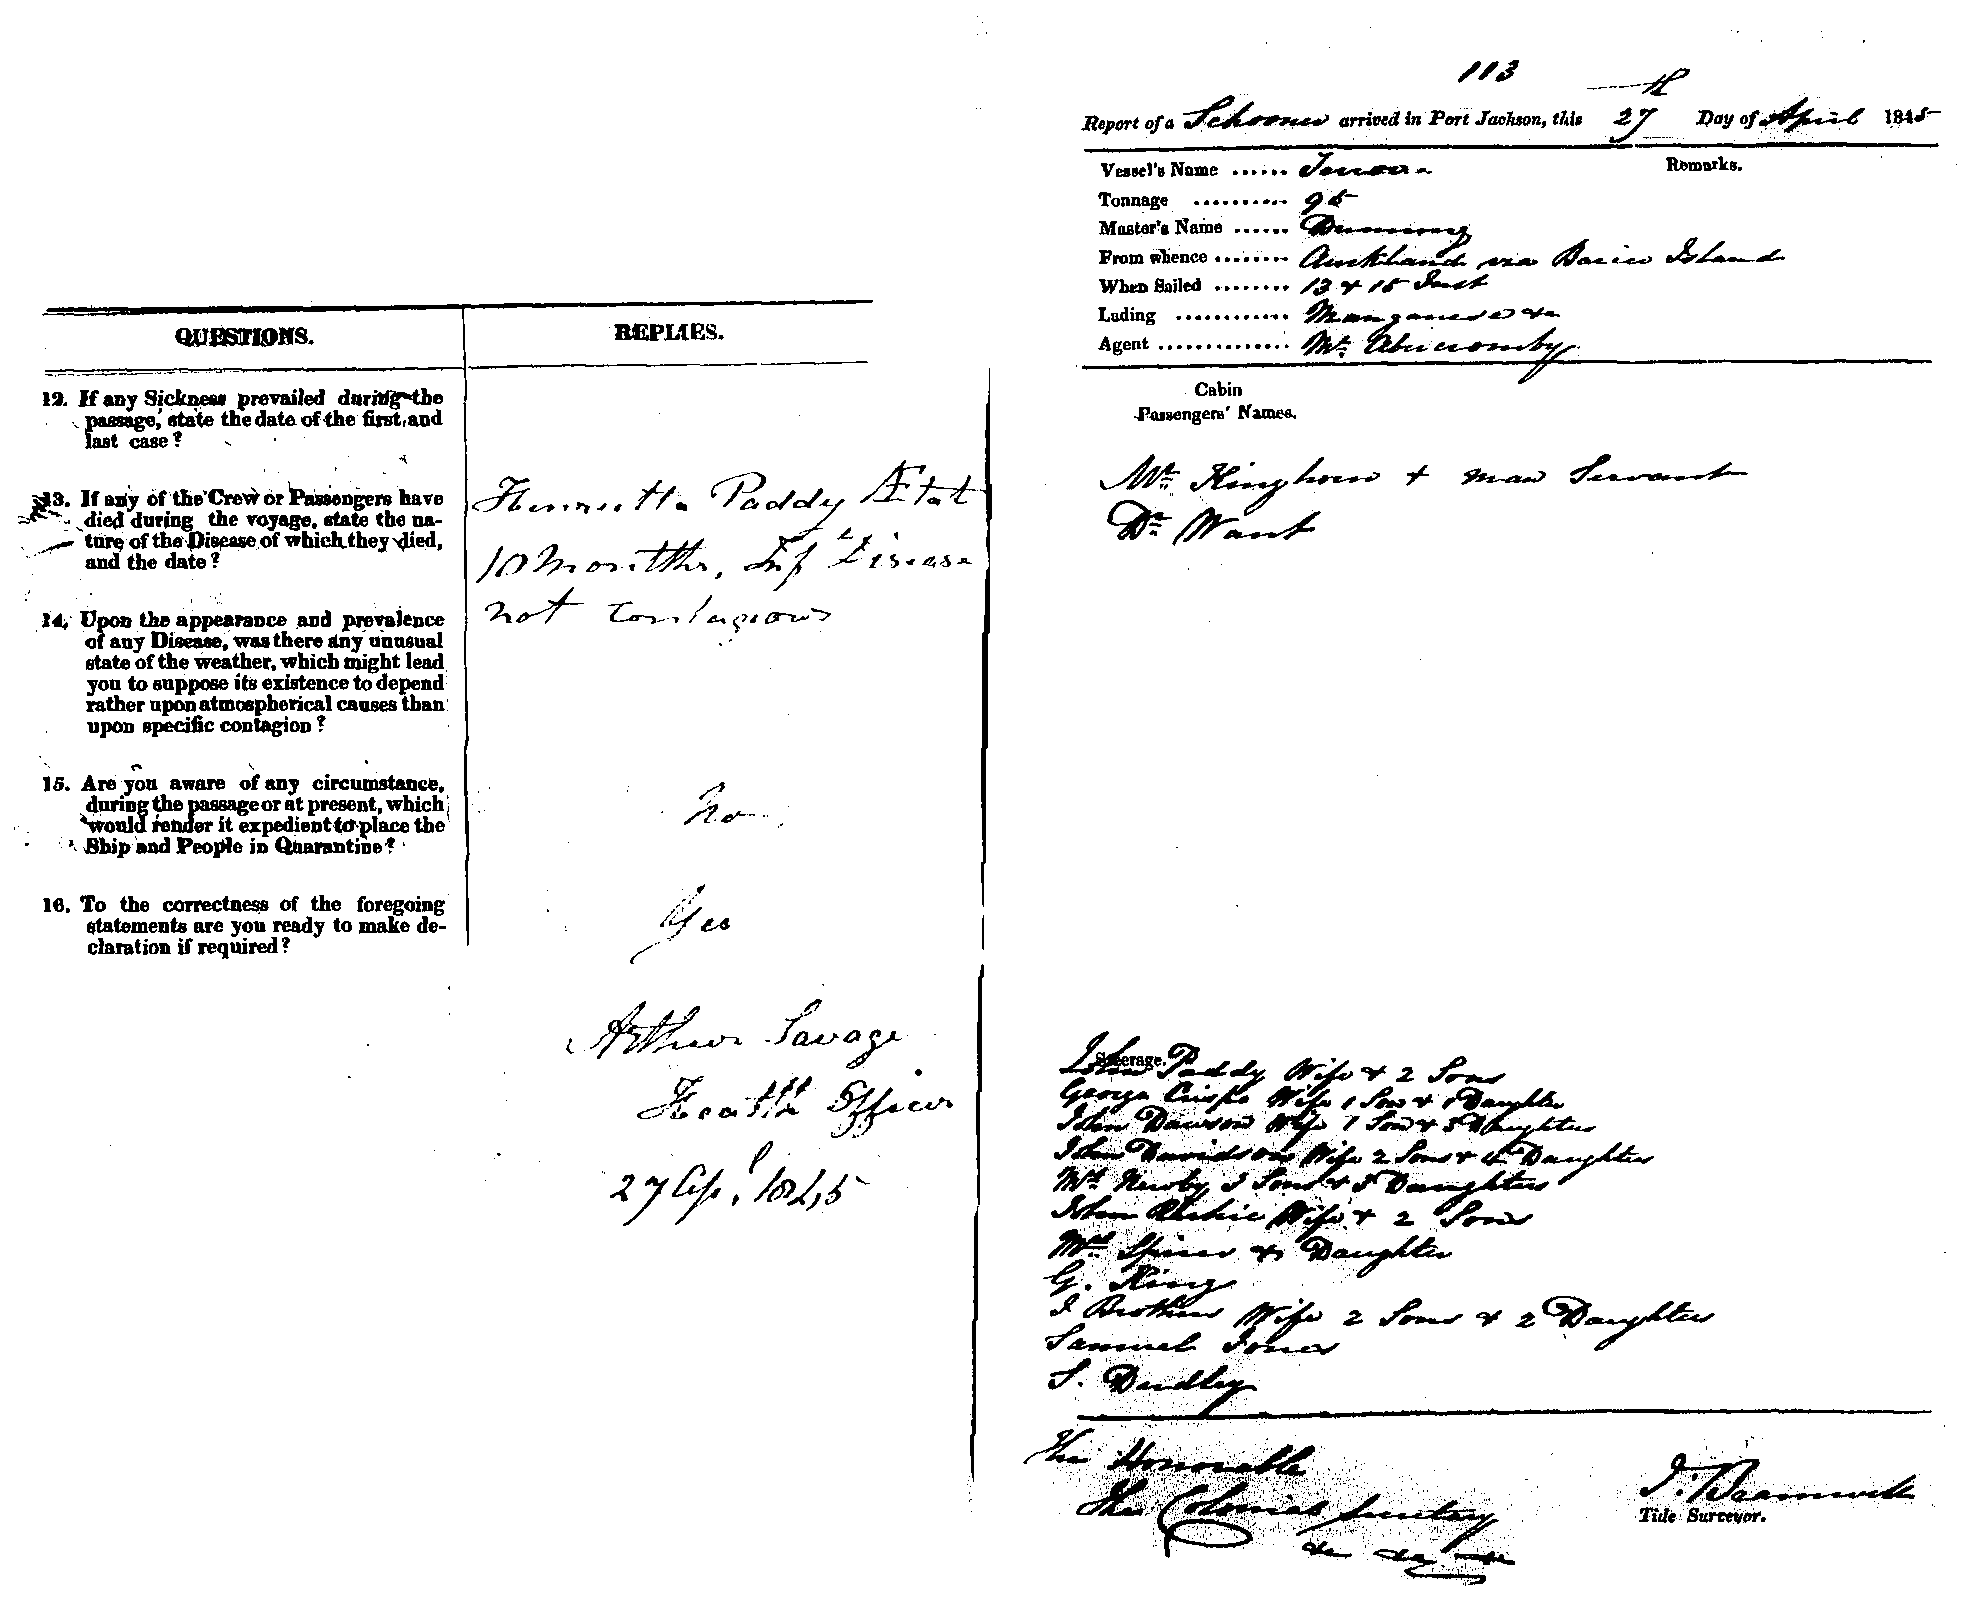 QUESTIONS.
REPLIES.
12. If any Sickness prevailed during the
passage, state the date of the first and
last case?
13. If any of the Crew or Passengers have
died during the voyage, state the na-
ture of the Disease of which they died,
and the date?
Henrietta Paddy Ætat
10 Months, Inf Disease
not contagious
14. Upon the appearance and prevalence
of any Disease, was there any unusual
state of the weather, which might lead
you to suppose its existence to depend
rather upon atmospherical causes than
upon specific contagion?
15. Are you aware of any circumstance,
during the passage or at present, which
would render it expedient to place the
Ship and People in Quarantine?
No
16. To the correctness of the foregoing
statements are you ready to make de-
claration if required?
Yes
Arthur Savage
Health Officer
27 Apl 1845
113
Report of a Schooner arrived in Port Jackson, this 27th Day of April 1845
Vessel's Name ...... 
Remarks.
Tonnage .......... 95
Master's Name ...... Dunning
From whence ........ Auckland via Island
When Sailed ........ 13 & 15 Inst
Lading ............ Manganese &c
Agent .............. Mr. Abercromby
Cabin
Passengers' Names.
Mr. Kinghorn & man Servant
Dr. Want
Steerage.
John Paddy Wife & 2 Sons
George Crispe Wife 1 Son & 1 Daughter
John Dawson Wife 1 Son & 3 Daughters
John Davidson Wife 2 Sons & 4 Daughters
Newby Sons & Daughters
John Ritchie Wife & 2 Sons
Mrs Spicer & Daughter
G. King
J Brothers Wife 2 Sons & 2 Daughters
Samuel Jones
S. Dudley
The Honorable
The Colonial Secretary
&c &c &c
J. Bramwell
Tide Surveyor.